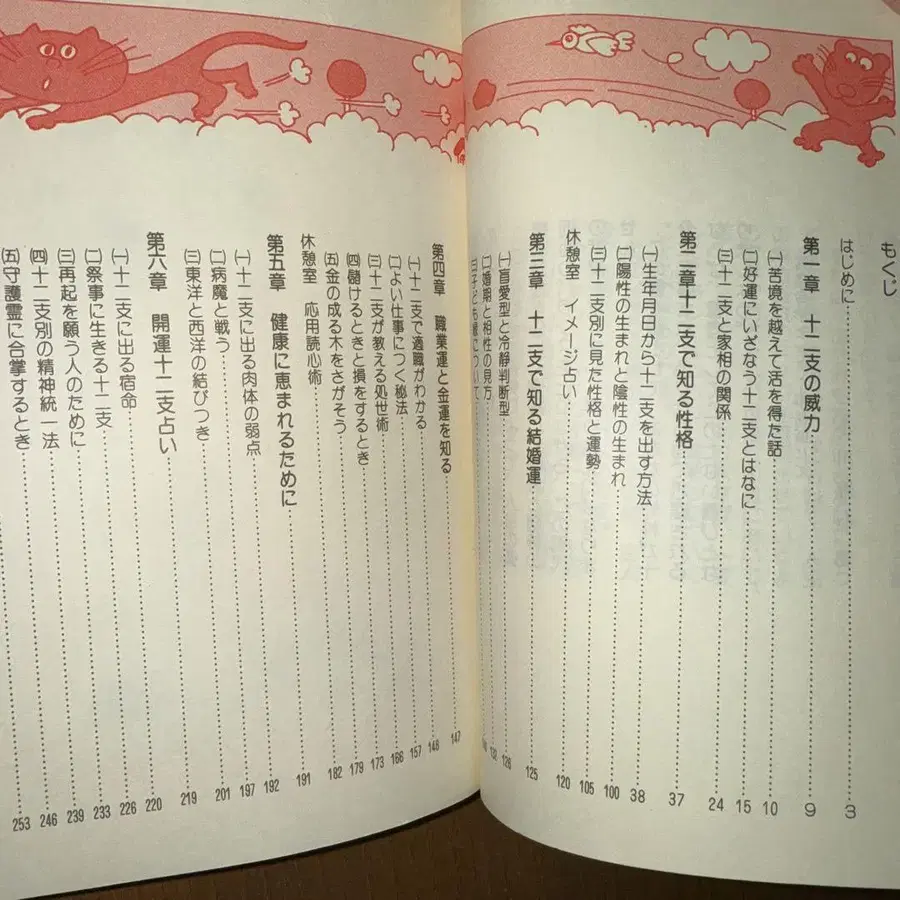 もくじ
はじめに……3
第一章 十二支の威力……9
㈠苦境を越えて活を得た話……10
㈡好運にいざなう十二支とはなに……15
㈢十二支と家相の関係……24
第二章 十二支で知る性格……37
㈠生年月日から十二支を出す方法……38
㈡陽性の生まれと陰性の生まれ……100
㈢十二支別に見た性格と運勢……105
休憩室 イメージ占い……120
第三章 十二支で知る結婚運……125
㈠盲愛型と冷静判断型……126
㈡婚期と相性の見方……132
㈢子ども縁について……
147
第四章 職業運と金運を知る……148
㈠十二支で適職がわかる……157
㈡よい仕事につく秘法……166
㈢十二支が教える処世術……173
㈣儲けるときと損をするとき……179
㈤金の成る木をさがそう……182
休憩室 応用読心術……191
第五章 健康に恵まれるために……192
㈠十二支に出る肉体の弱点……197
㈡病魔と戦う……201
㈢東洋と西洋の結びつき……219
第六章 開運十二支占い……220
㈠十二支に出る宿命……226
㈡祭事に生きる十二支……233
㈢再起を願う人のために……239
㈣十二支別の精神統一法……246
㈤守護霊に合掌するとき……253